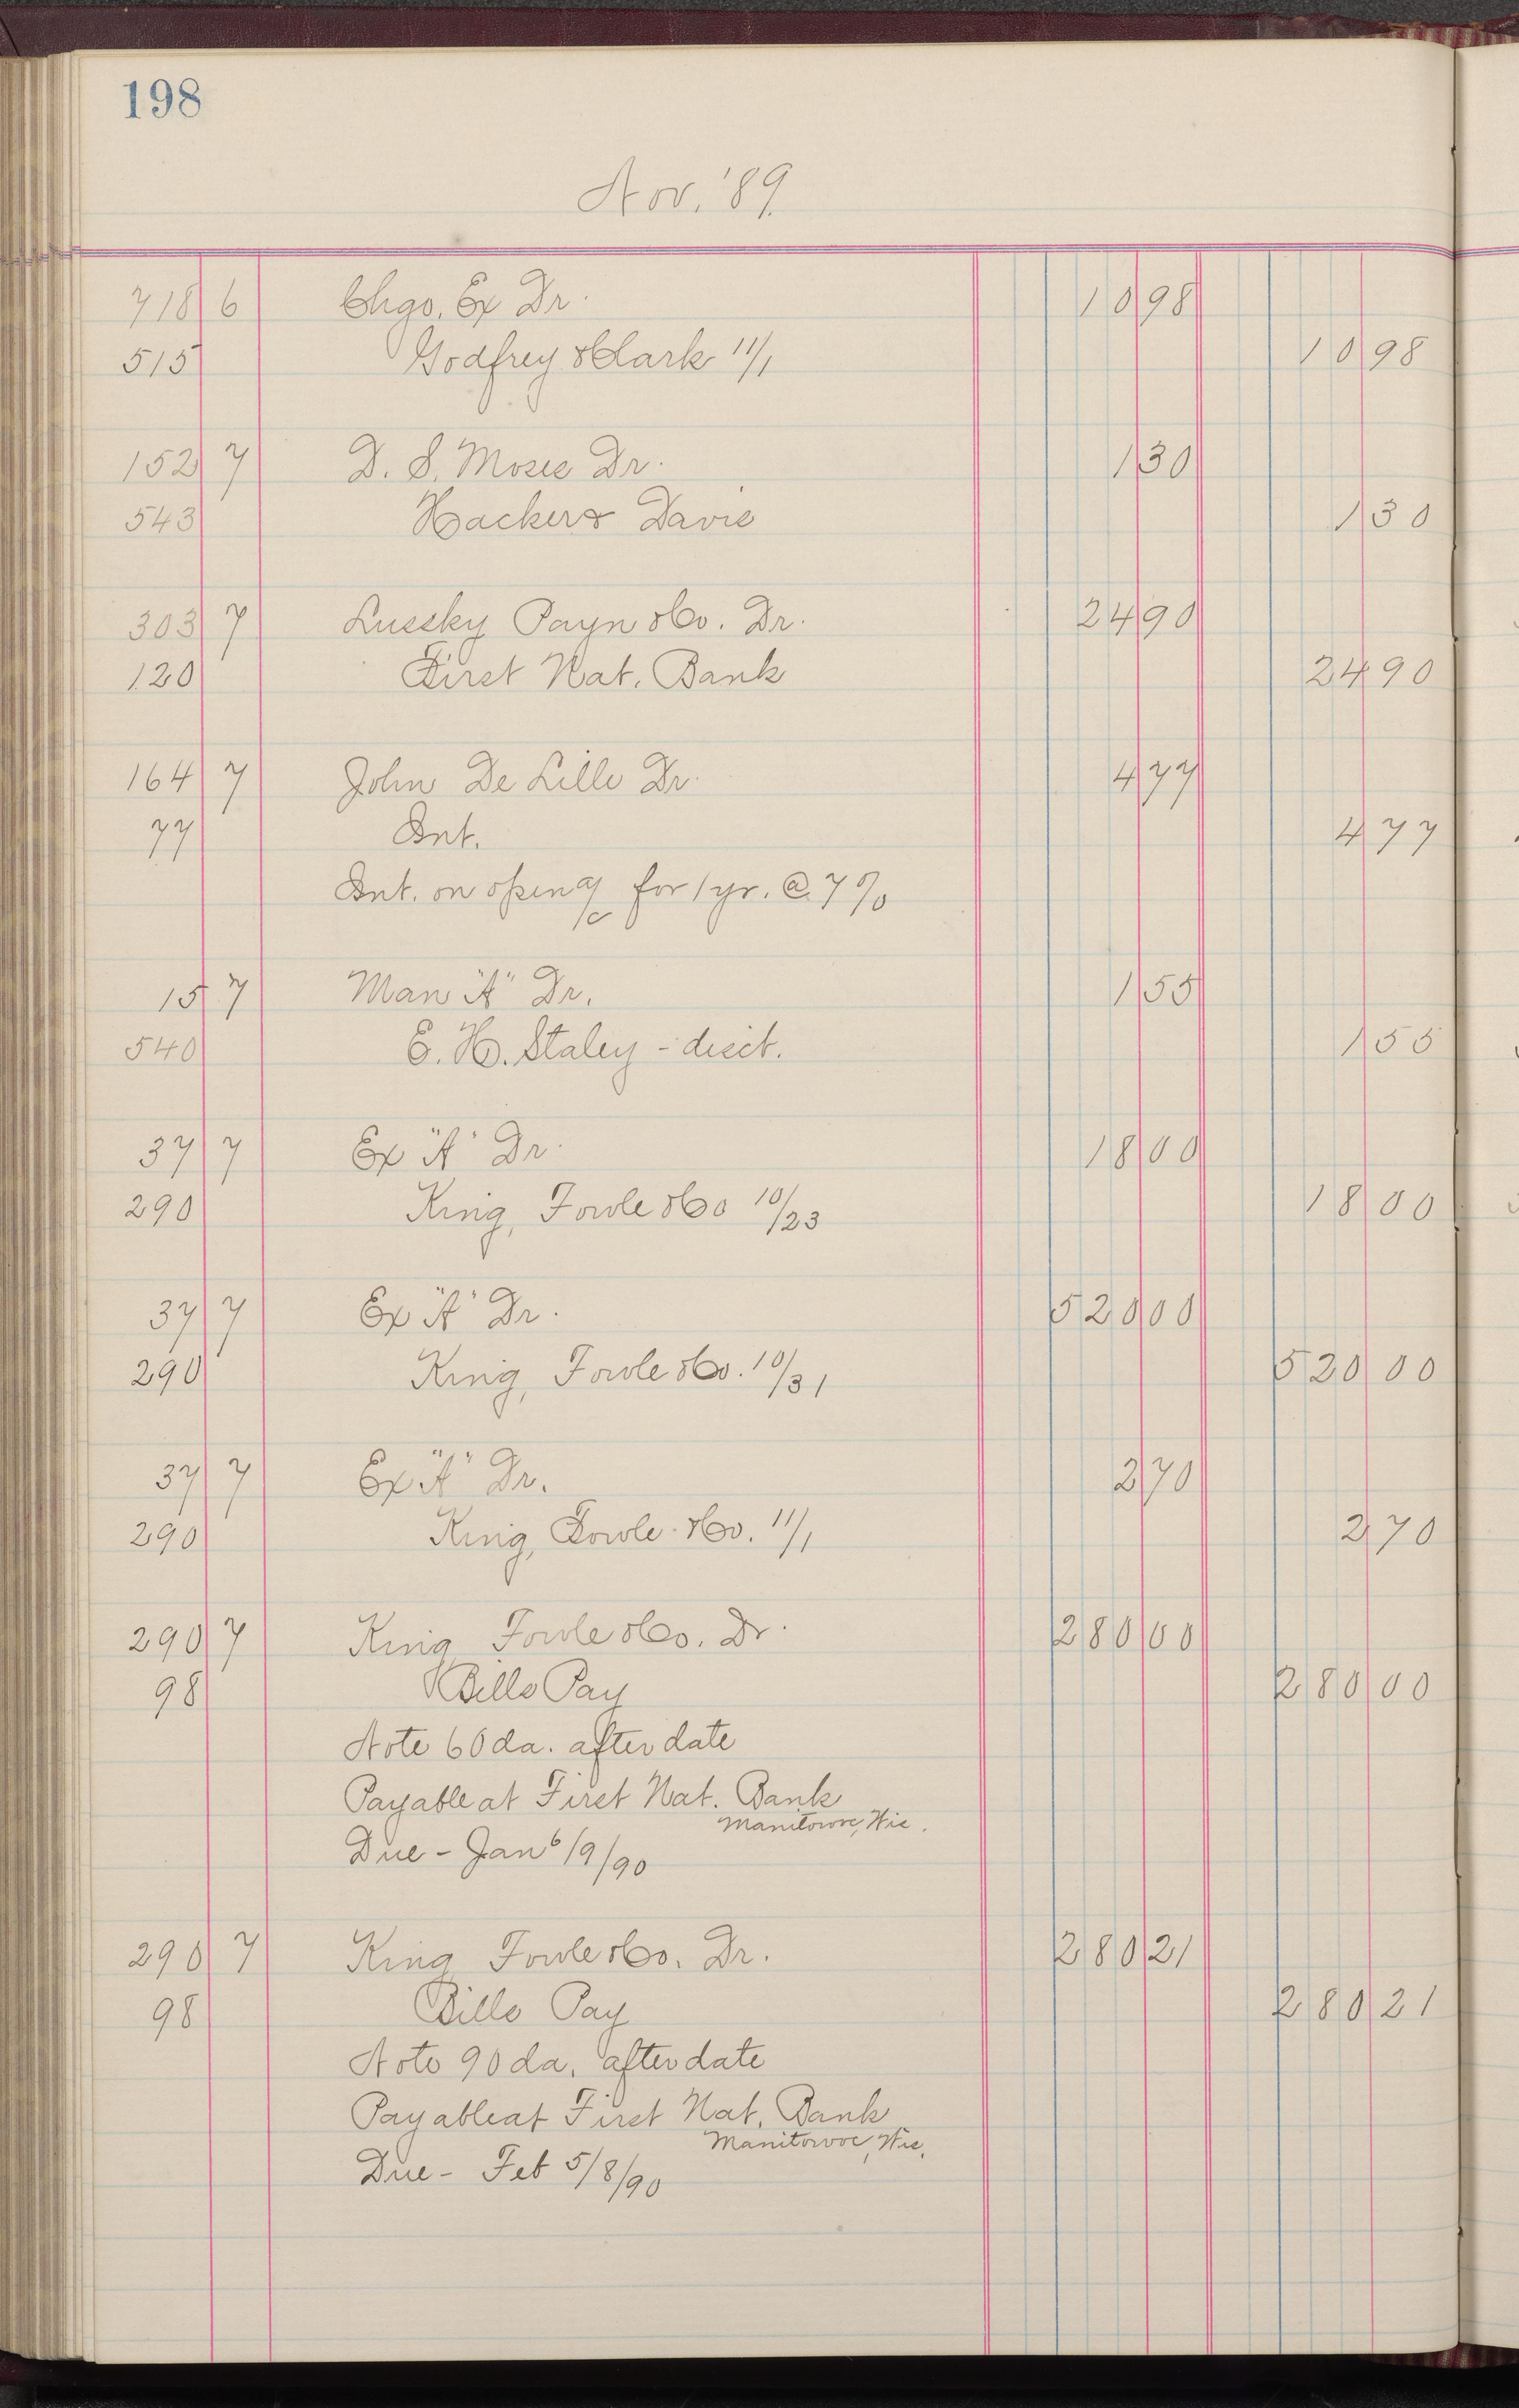 198
Nov. '89.
718 6 Chgo. Ex Dr. 10 98
515 Godfrey & Clark 11/1 10 98
152 7 D. S. Moses Dr. 1 30
543 Hacker & Davis 1 30
303 7 Lussky Payn & Co. Dr. 24 90
120 First Nat. Bank 24 90
164 7 John De Lille Dr. 4 77
77 Int. 4 77
Int. on open a/c for 1 yr. @ 7%
15 7 Man "A" Dr. 1 55
540 E. H. Staley - disct. 1 55
37 7 Ex "A" Dr. 18 00
290 King, Fowle & Co 10/23 18 00
37 7 Ex "A" Dr. 520 00
290 King, Fowle & Co. 10/31 520 00
37 7 Ex "A" Dr. 2 70
290 King, Fowle & Co. 11/1 2 70
290 7 King Fowle & Co. Dr. 280 00
98 Bills Pay 280 00
Note 60 da. after date
Payable at First Nat. Bank
Manitowoc, Wis.
Due - Jan 6/9/90
290 7 King Fowle & Co. Dr. 280 21
98 Bills Pay 280 21
Note 90 da. after date
Payable at First Nat. Bank
Manitowoc, Wis.
Due - Feb 5/8/90